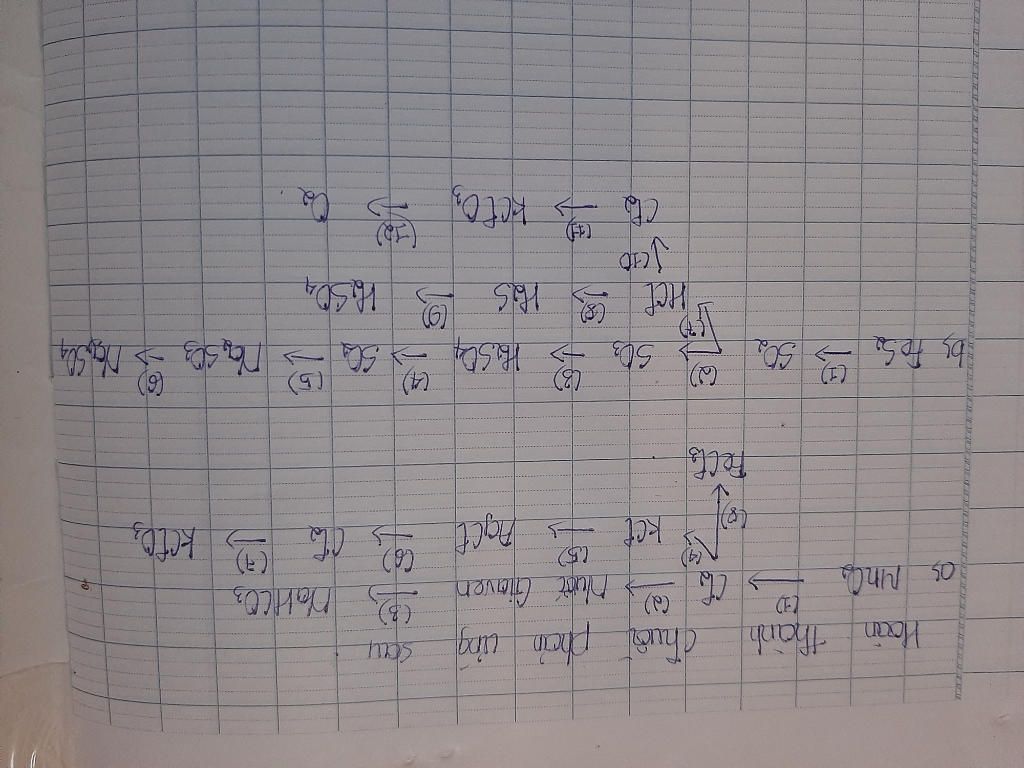 Hoàn thành chuỗi phản ứng sau
a, MnO₂ (1)→ Cl₂ (2)→ Nước Giaven (3)→ NaHCO₃
(4)→ KCl (5)→ AgCl (6)→ Cl₂ (7)→ KClO₃
(8)→ FeCl₃
b, FeS₂ (1)→ SO₂ (2)→ SO₃ (3)→ H₂SO₄ (4)→ SO₂ (5)→ Na₂SO₃ (6)→ Na₂SO₄
(7)→ HCl (8)→ H₂S (9)→ H₂SO₄
↓(10)
Cl₂ (11)→ KClO₃ (12)→ O₂